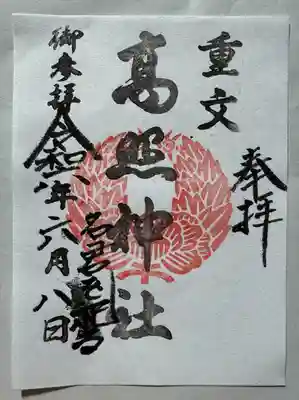 奉拝
重文
高照神社
御参拝
令和八年六月八日